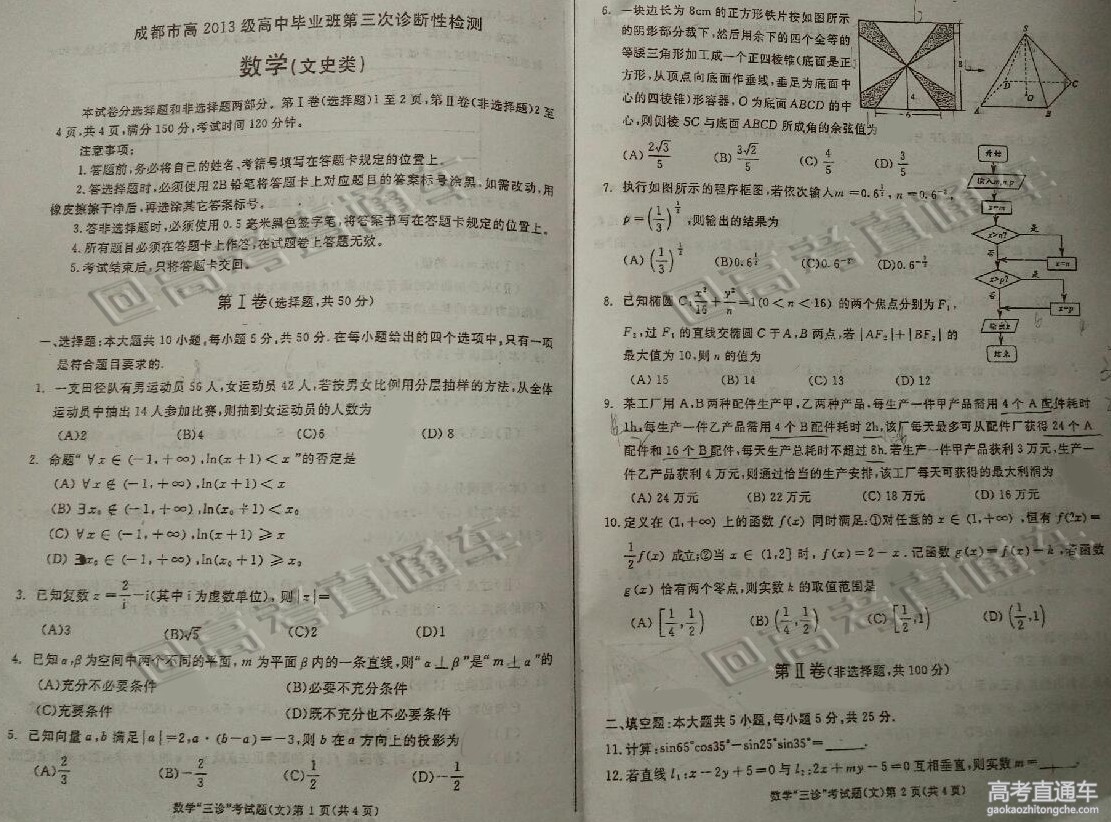 成都市高2013级高中毕业班第三次诊断性检测
数学(文史类)
本试卷分选择题和非选择题两部分。第Ⅰ卷(选择题)1至2页,第Ⅱ卷(非选择题)2至
4页,共4页,满分150分,考试时间120分钟。
注意事项:
1.答题前,务必将自己的姓名、考籍号填写在答题卡规定的位置上。
2.答选择题时,必须使用2B铅笔将答题卡上对应题目的答案标号涂黑,如需改动,用
橡皮擦擦干净后,再选涂其它答案标号。
3.答非选择题时,必须使用0.5毫米黑色签字笔,将答案书写在答题卡规定的位置上。
4.所有题目必须在答题卡上作答,在试题卷上答题无效。
5.考试结束后,只将答题卡交回。
第Ⅰ卷(选择题,共50分)
一、选择题:本大题共10小题,每小题5分,共50分.在每小题给出的四个选项中,只有一项
是符合题目要求的.
1. 一支田径队有男运动员56人,女运动员42人,若按男女比例用分层抽样的方法,从全体
运动员中抽出14人参加比赛,则抽到女运动员的人数为
(A)2 (B)4 (C)6 (D)8
2. 命题“∀x∈(-1,+∞),ln(x+1)<x”的否定是
(A) ∀x∉(-1,+∞),ln(x+1)<x
(B) ∃x₀∉(-1,+∞),ln(x₀+1)<x₀
(C) ∀x∈(-1,+∞),ln(x+1)≥x
(D) ∃x₀∈(-1,+∞),ln(x₀+1)≥x₀
3. 已知复数z=2/i-i(其中i为虚数单位),则|z|=
(A)3 (B)√5 (C)2 (D)1
4. 已知α,β为空间中两个不同的平面,m为平面β内的一条直线,则“α⊥β”是“m⊥α”的
(A)充分不必要条件 (B)必要不充分条件
(C)充要条件 (D)既不充分也不必要条件
5. 已知向量a,b满足|a|=2,a·(b-a)=-3,则b在a方向上的投影为
(A)2/3 (B)-2/3 (C)1/2 (D)-1/2
数学“三诊”考试题(文)第1页(共4页)
6. 一块边长为8cm的正方形铁片按如图所示
的阴影部分裁下,然后用余下的四个全等的
等腰三角形加工成一个正四棱锥(底面是正
方形,从顶点向底面作垂线,垂足为底面中
心的四棱锥)形容器,O为底面ABCD的中
心,则侧棱SC与底面ABCD所成角的余弦值为
(A)2√3/5 (B)3√2/5 (C)4/5 (D)3/5
8
4
6
S
D
C
O
A
B
7. 执行如图所示的程序框图,若依次输入m=0.6^(1/2),
p=(1/3)^(1/2),则输出的结果为
(A)(1/3)^(1/2) (B)0.6^(1/2)
开始
输入m,n,p
x=m
x>n?
是
x=n
否
x>p?
是
x=p
否
输出x
结束
8. 已知椭圆C:x²/16+y²/n=1(0<n<16)的两个焦点分别为F₁,
F₂,过F₁的直线交椭圆C于A,B两点,若|AF₂|+|BF₂|的
最大值为10,则n的值为
(A)15 (B)14 (C)13 (D)12
9. 某工厂用A,B两种配件生产甲,乙两种产品,每生产一件甲产品需用4个A配件耗时
1h,每生产一件乙产品需用4个B配件耗时2h,该厂每天最多可从配件厂获得24个A
配件和16个B配件,每天生产总耗时不超过8h.若生产一件甲产品获利3万元,生产一
件乙产品获利4万元,则通过恰当的生产安排,该工厂每天可获得的最大利润为
(A)24万元 (B)22万元 (C)18万元 (D)16万元
10.定义在(1,+∞)上的函数f(x)同时满足:①对任意的x∈(1,+∞),恒有f(2x)=
1/2f(x)成立;②当x∈(1,2]时,f(x)=2-x.记函数g(x)=f(x)-k,若函数
g(x)恰有两个零点,则实数k的取值范围是
(A)[1/4,1/2) (B)(1/4,1/2) (C)[1/2,1) (D)(1/2,1)
第Ⅱ卷(非选择题,共100分)
二、填空题:本大题共5小题,每小题5分,共25分.
11.计算:sin65°cos35°-sin25°sin35°=____.
12.若直线l₁:x-2y+5=0与l₂:2x+my-5=0互相垂直,则实数m=____.
数学“三诊”考试题(文)第2页(共4页)
高考直通车
高考直通车
高考直通车
高考直通车
高考直通车
gaokaozhitongche.com